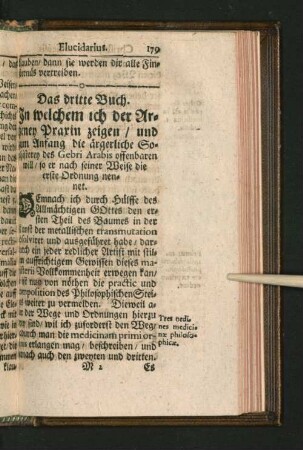 Elucidarius. 179
lauben/ dann sie werden dir alle Fin-
sternüs vertreiben.
Das dritte Buch.
In welchem ich der Ar-
tzney Praxin zeigen / und
im Anfang die ärgerliche So-
des Gebri Arabis offenbaren
will / so er nach seiner Weise die
erste Ordnung nen-
net.
DEmnach ich durch Hülffe des
Allmächtigen GOttes den er-
sten Theil des Baumes in der
Kunst der metallischen transmutation
und ausgeführet habe / dar-
durch ein jeder redlicher Artist mit
auffrichtigem Gewissen dieses
Vollkommenheit erwegen kan/
ist nun von nöthen die practic und
des Philosophischen Stei-
nes weiter zu vermelden. Dieweil a-
ber der Wege und Ordnungen hierzu
sind / wil ich zuforderst den Weg/
durch man die medicinam primi or-
dinis erlangen mag / beschreiben / und
hernach auch den zweyten und dritten.
Tres ordi-
nes medici-
næ philoso-
phicæ.
M 2 Es